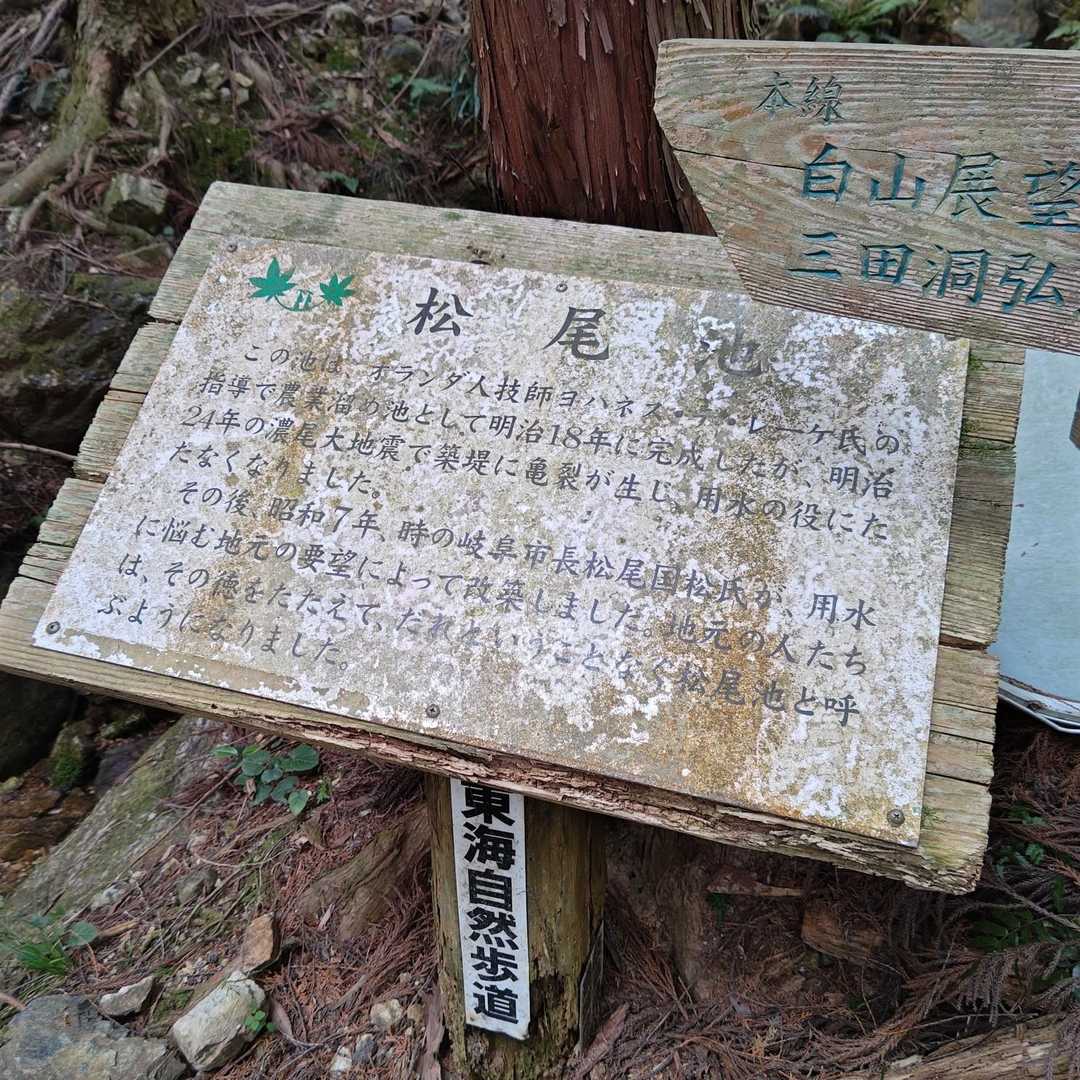 松尾池
この池は、オランダ人技師ヨハネス・デ・レーケ氏の
指導で農業溜め池として明治18年に完成したが、明治
24年の濃尾大地震で築堤に亀裂が生じ、用水の役にた
たなくなりました。
その後、昭和7年、時の岐阜市長松尾国松氏が、用水
に悩む地元の要望によって改築しました。地元の人たち
は、その徳をたたえて、だれということなく松尾池と呼
ぶようになりました。
本線
白山展望
三田洞弘
東海自然歩道